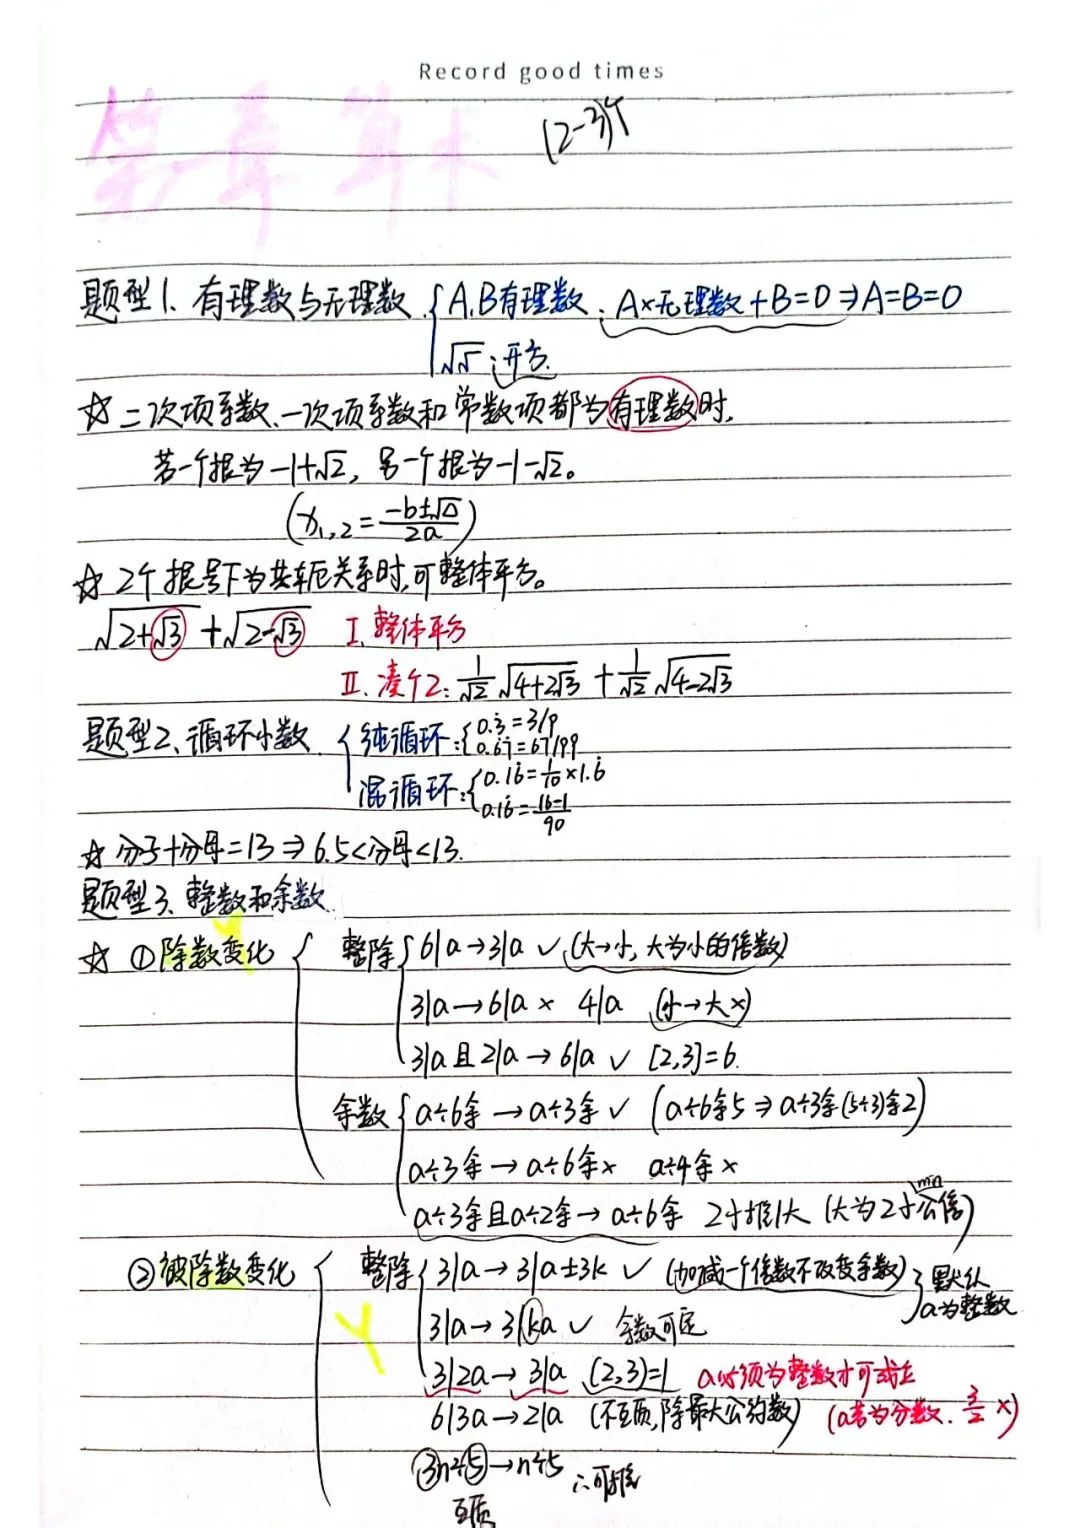 Record good times
第一章 算术
(2-3)个
题型1. 有理数与无理数 { A.B有理数: A×无理数+B=0⇒A=B=0
√5: 开方.
☆ 二次项系数、一次项系数和常数项都为有理数时,
若一个根为-1+√2, 另一个根为-1-√2。
(x₁,₂ = (-b±√Δ)/2a)
☆ 2个根号下为共轭关系时,可整体平方。
√(2+√3) + √(2-√3) Ⅰ.整体平方
Ⅱ. 凑个2: 1/√2 √(4+2√3) + 1/√2 √(4-2√3)
题型2、循环小数 { 纯循环: { 0.3̇=3/9
0.6̇7̇=67/99
混循环: { 0.16̇=1/10×1.6̇
0.16̇=(16-1)/90
☆ 分子+分母=13⇒6.5<分母<13.
题型3、整数和余数
☆ ①除数变化 { 整除 { 6|a→3|a ✓ (大→小, 大为小的倍数)
3|a→6|a × 4|a (小→大×)
3|a且2|a→6|a ✓ [2,3]=6.
余数 { a÷6余→a÷3余 ✓ (a÷6余5⇒a÷3余(5÷3)余2)
a÷3余→a÷6余× a÷4余×
a÷3余且a÷2余→a÷6余 2小推1大 (大为2小公倍) min
②被除数变化 { 整除 { 3|a→3|a±3k ✓ (加减一个倍数不改变余数) } 默认
a为整数
3|a→3|ka ✓ 余数可定
3|2a→3|a (2,3)=1 a必须为整数才可成立
6|3a→2|a (不互质,除最大公约数) (a若为分数. 3/2 ×)
③n÷⑤→n÷5 ∴可推
互质